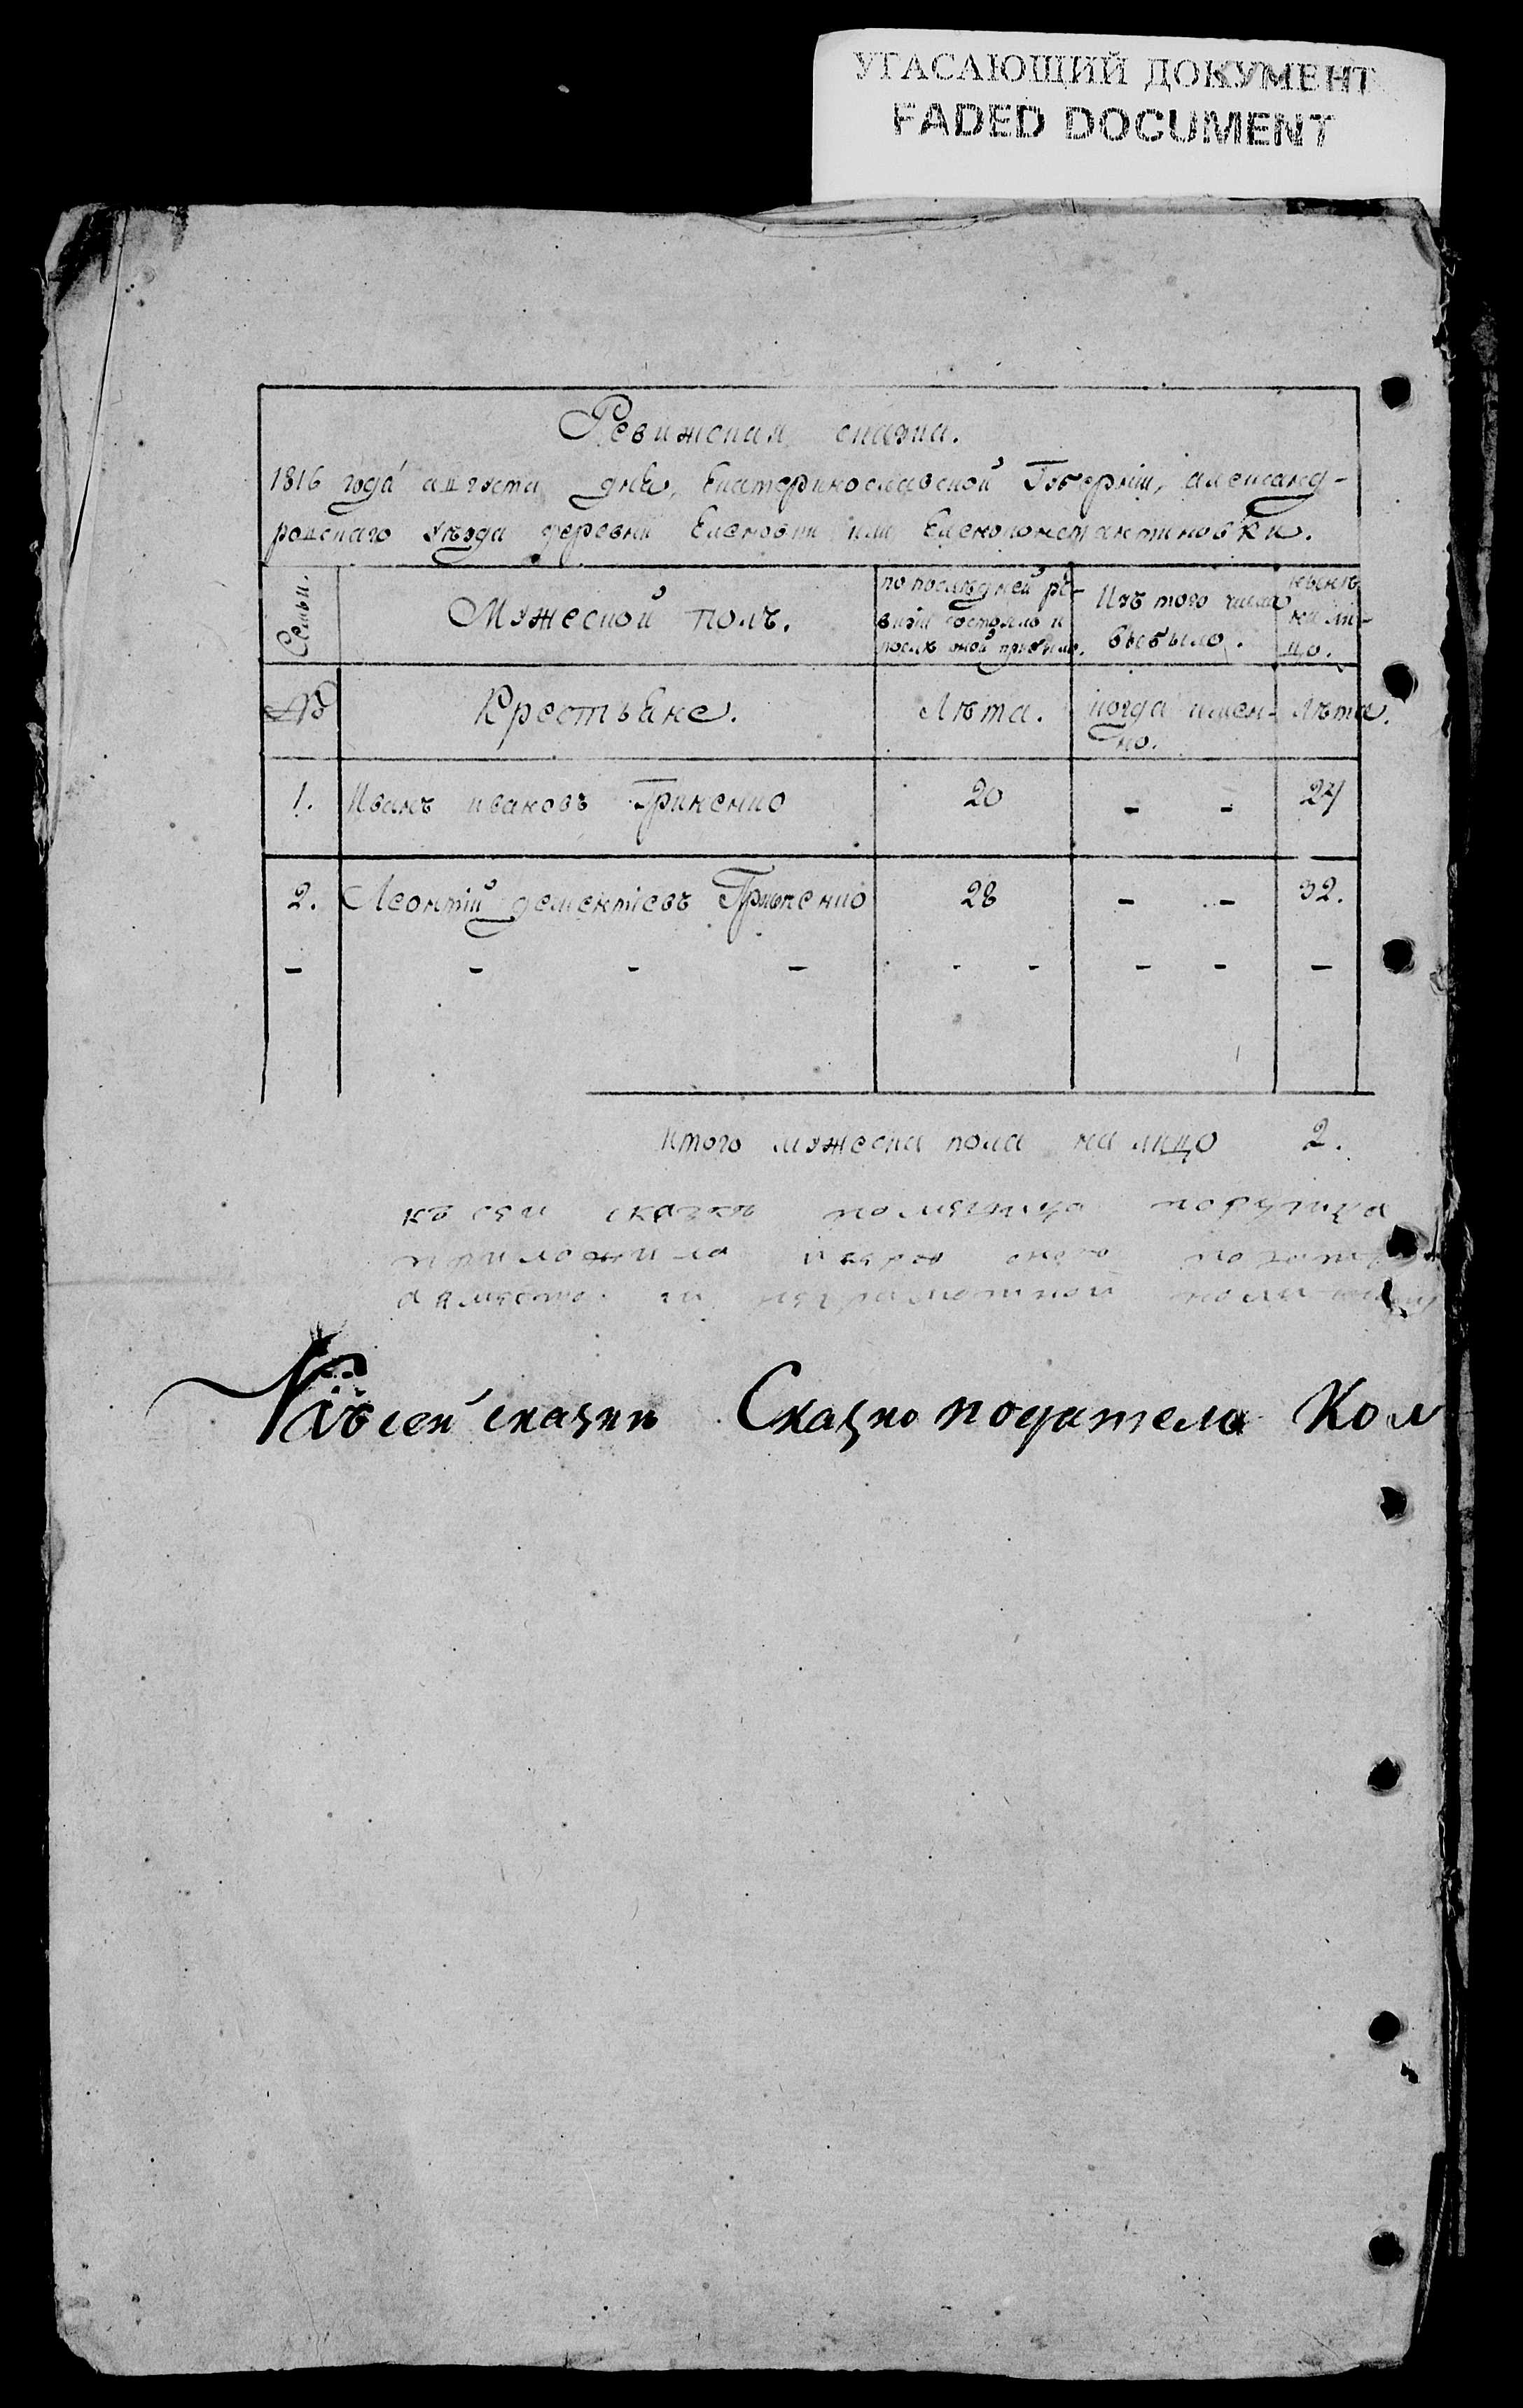 УГАСАЮЩИЙ ДОКУМЕНТ
FADED DOCUMENT
Ревижская сказка.
1816 года августа дня, Екатеринославской Губерніи, александ-
ровскаго уѣзда деревни Еленовки или Еленоконстантиновки.
Семьи.
Мужеской полъ.
по послѣдней ре-
визіи состояло и
послѣ оной прибыло.
Изъ того числа
выбыло.
нынѣ
на ли-
цо.
№
Крестьяне.
Лѣта.
когда имен-
но.
Лѣта.
1. Иванъ ивановъ Гриненко 20 - - 24
2. Леонтій дементіевъ 28 - - 32.
- - - - - - - - -
итого мужеска пола на лицо 2.
Къ сей
сказки
Къ сей сказки Сказко подателя Кол